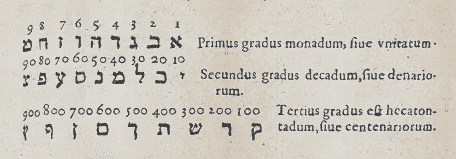 9 8 7 6 5 4 3 2 1
א ב ג ד ה ו ז ח ט
Primus gradus monadum, ſiue vnitatum.
90 80 70 60 50 40 30 20 10
י כ ל מ נ ס ע פ צ
Secundus gradus decadum, ſiue denario-
rum.
900 800 700 600 500 400 300 200 100
ק ר ש ת ך ם ן ף ץ
Tertius gradus eſt hecaton-
tadum, ſiue centenariorum.